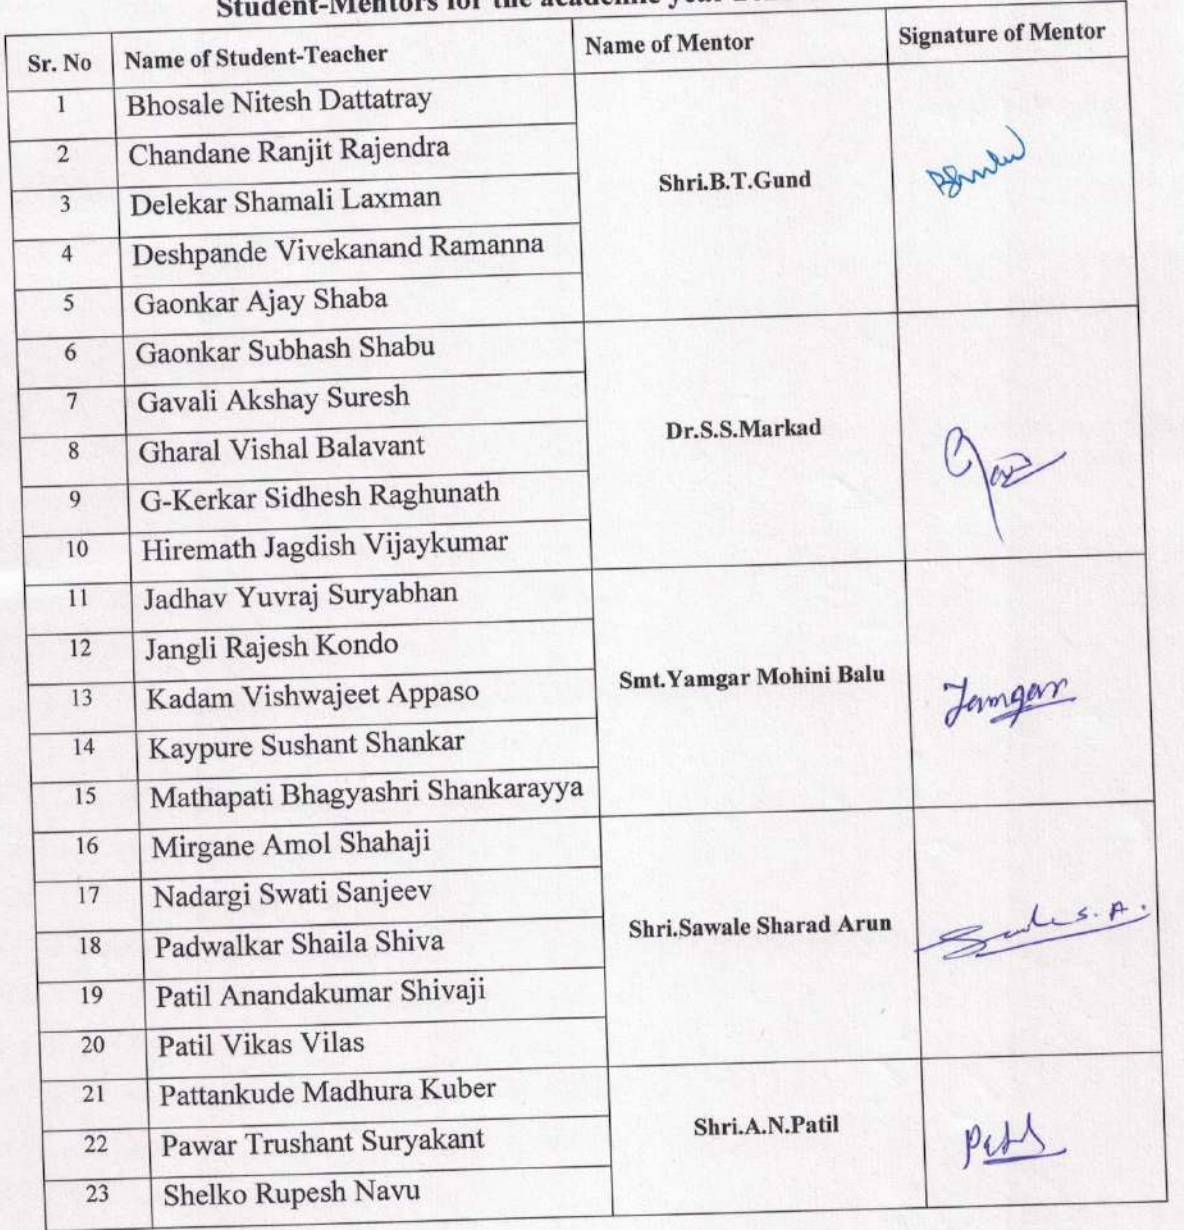 Student-Mentors for the academic year
Sr. No Name of Student-Teacher Name of Mentor Signature of Mentor
1 Bhosale Nitesh Dattatray
2 Chandane Ranjit Rajendra
Shri.B.T.Gund
3 Delekar Shamali Laxman
4 Deshpande Vivekanand Ramanna
5 Gaonkar Ajay Shaba
6 Gaonkar Subhash Shabu
7 Gavali Akshay Suresh
Dr.S.S.Markad
8 Gharal Vishal Balavant
9 G-Kerkar Sidhesh Raghunath
10 Hiremath Jagdish Vijaykumar
11 Jadhav Yuvraj Suryabhan
12 Jangli Rajesh Kondo
Smt.Yamgar Mohini Balu
13 Kadam Vishwajeet Appaso
14 Kaypure Sushant Shankar
15 Mathapati Bhagyashri Shankarayya
16 Mirgane Amol Shahaji
17 Nadargi Swati Sanjeev
Shri.Sawale Sharad Arun S.A.
18 Padwalkar Shaila Shiva
19 Patil Anandakumar Shivaji
20 Patil Vikas Vilas
21 Pattankude Madhura Kuber
Shri.A.N.Patil
22 Pawar Trushant Suryakant
23 Shelko Rupesh Navu